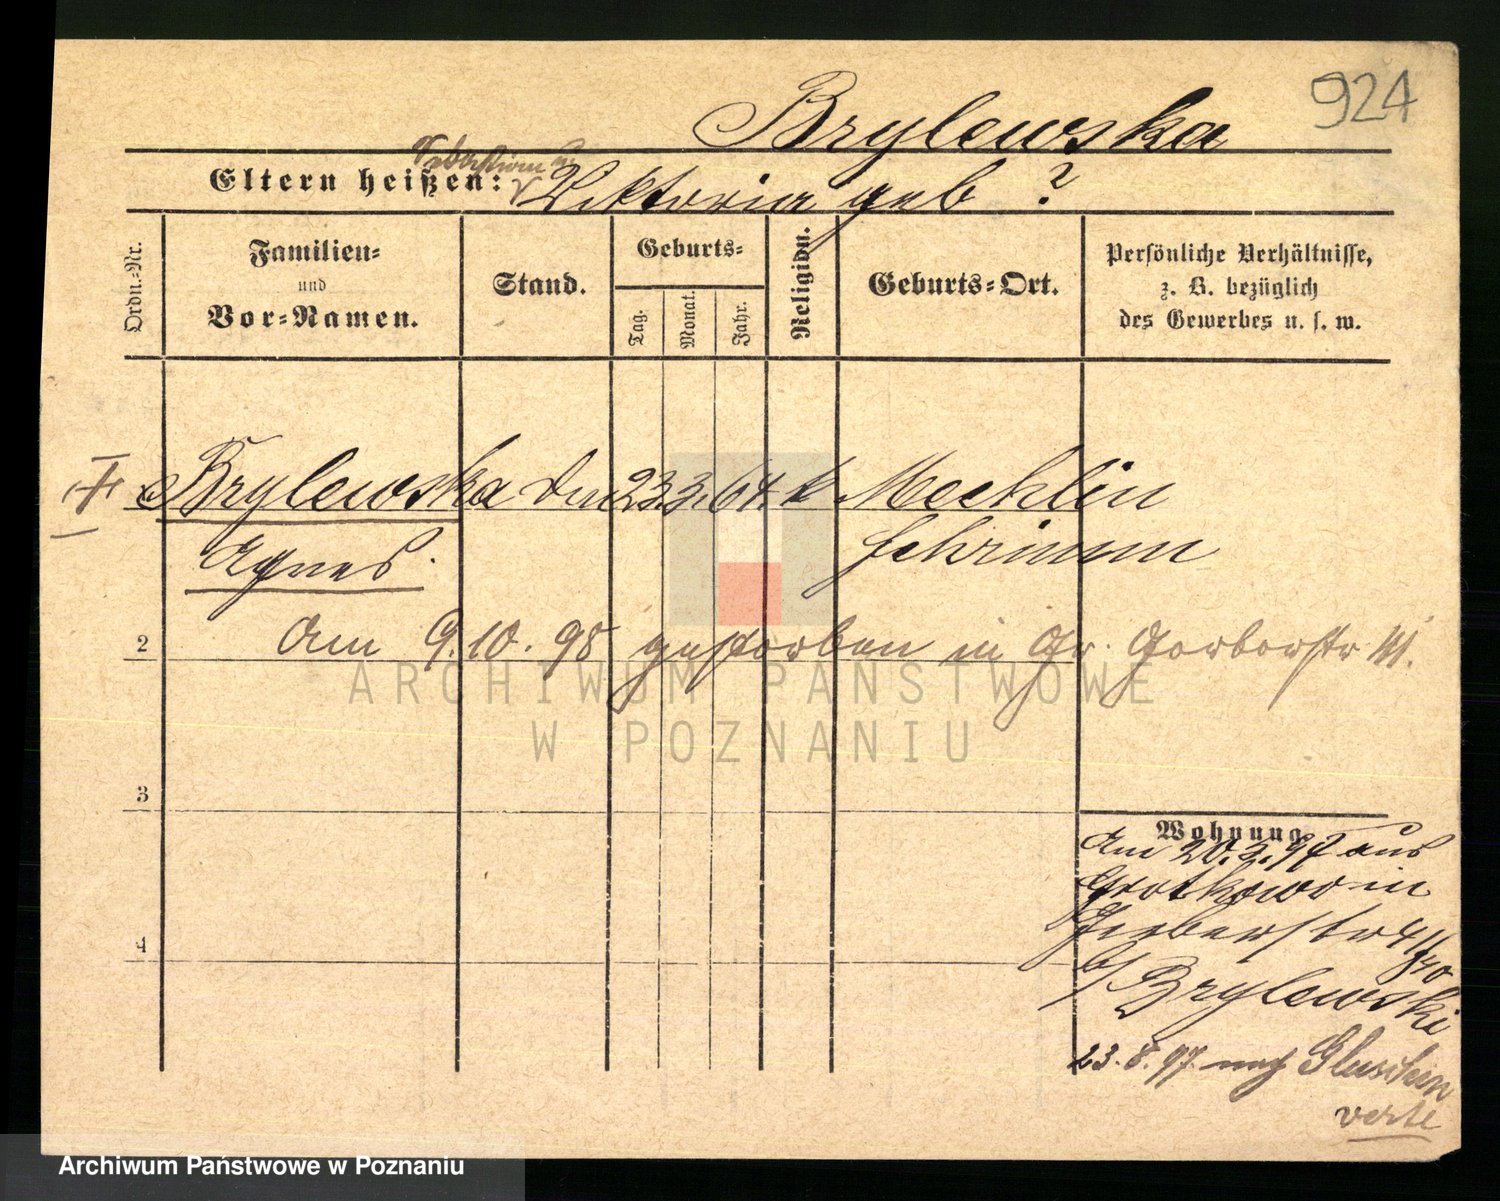 924
Brylewska
Sebastian u.
Eltern heißen: Viktoria geb ?
Ordn.-Nr.
Familien-
und
Vor-Namen.
Stand.
Geburts-
Tag.
Monat.
Jahr.
Religion.
Geburts-Ort.
Persönliche Verhältnisse,
z. B. bezüglich
des Gewerbes u. s. w.
Brylewska 23. 3. 64. k Mechlin
Agnes. Schrimm
2 Am 9.10.98 gestorben in Gr. Gerberstr
ARCHIWUM PAŃSTWOWE
W POZNANIU
3
Wohnung
Am 20.2.97 aus
in
Gerberstr 41/40
b/ Brylewski
4
23.8.97 nach
verte
Archiwum Państwowe w Poznaniu